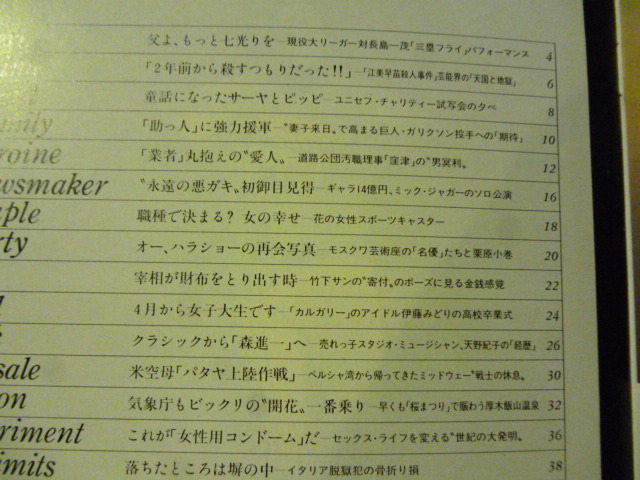 父よ、もっと七光りを―現役大リーガー対長島一茂「三塁フライ」パフォーマンス 4
「2年前から殺すつもりだった!!」―「江美早苗殺人事件」芸能界の「天国と地獄」 6
童話になったサーヤとピッピ―ユニセフ・チャリティー試写会の夕べ 8
「助っ人」に強力援軍―〝妻子来日〟で高まる巨人・ガリクソン投手への「期待」 10
「業者」丸抱えの〝愛人〟―道路公団汚職理事「窪津」の〝男冥利〟 12
wsmaker 〝永遠の悪ガキ〟初御目見得―ギャラ14億円、ミック・ジャガーのソロ公演 16
ple 職種で決まる? 女の幸せ―花の女性スポーツキャスター 18
rty オー、ハラショーの再会写真―モスクワ芸術座の「名優」たちと栗原小巻 20
宰相が財布をとり出す時―竹下サンの〝寄付〟のポーズに見る金銭感覚 22
4月から女子大生です―「カルガリー」のアイドル伊藤みどりの高校卒業式 24
クラシックから「森進一」へ―売れっ子スタジオ・ミュージシャン、天野紀子の「経歴」 26
sale 米空母「パタヤ上陸作戦」―ペルシャ湾から帰ってきたミッドウェー〝戦士の休息〟 30
on 気象庁もビックリの〝開花〟一番乗り―早くも「桜まつり」で賑わう厚木飯山温泉 32
riment これが「女性用コンドーム」だ―セックス・ライフを変える〝世紀の大発明〟 36
imits 落ちたところは塀の中―イタリア脱獄犯の骨折り損 38